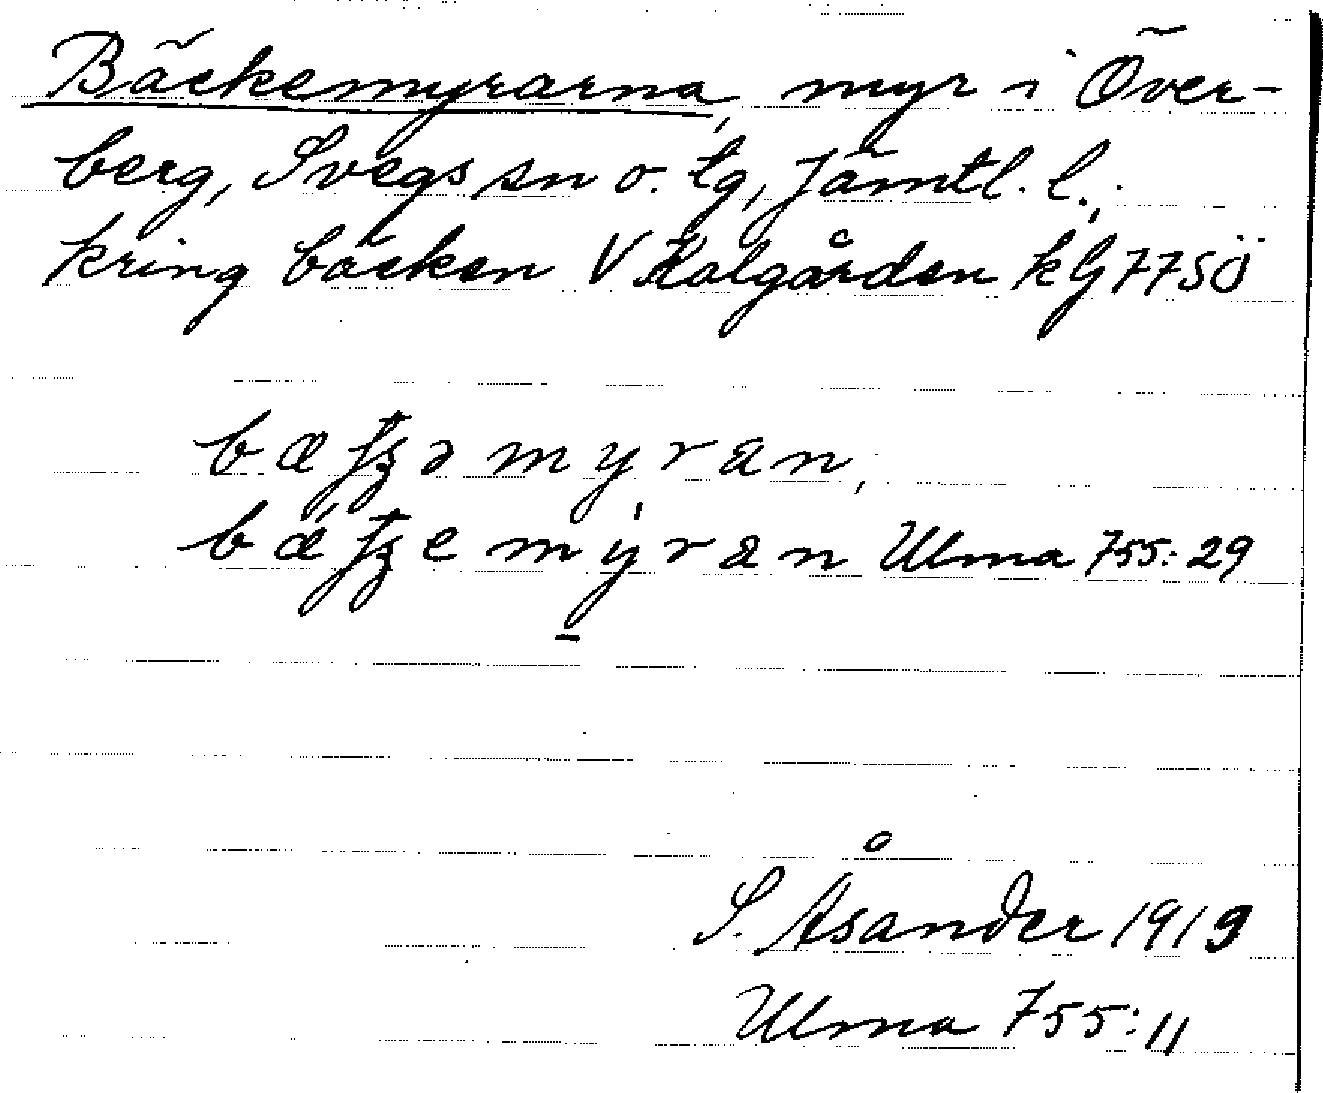 Bäckemyrarna, myr i Över-
berg, Svegs sn o. tg, Jämtl. l.,
kring bäcken V Kolgården kG 77 SÖ
bæʈʂəmyran,
bǽʈʂemýran Ulma 755:29
S. Åsander 1919
Ulma 755:11